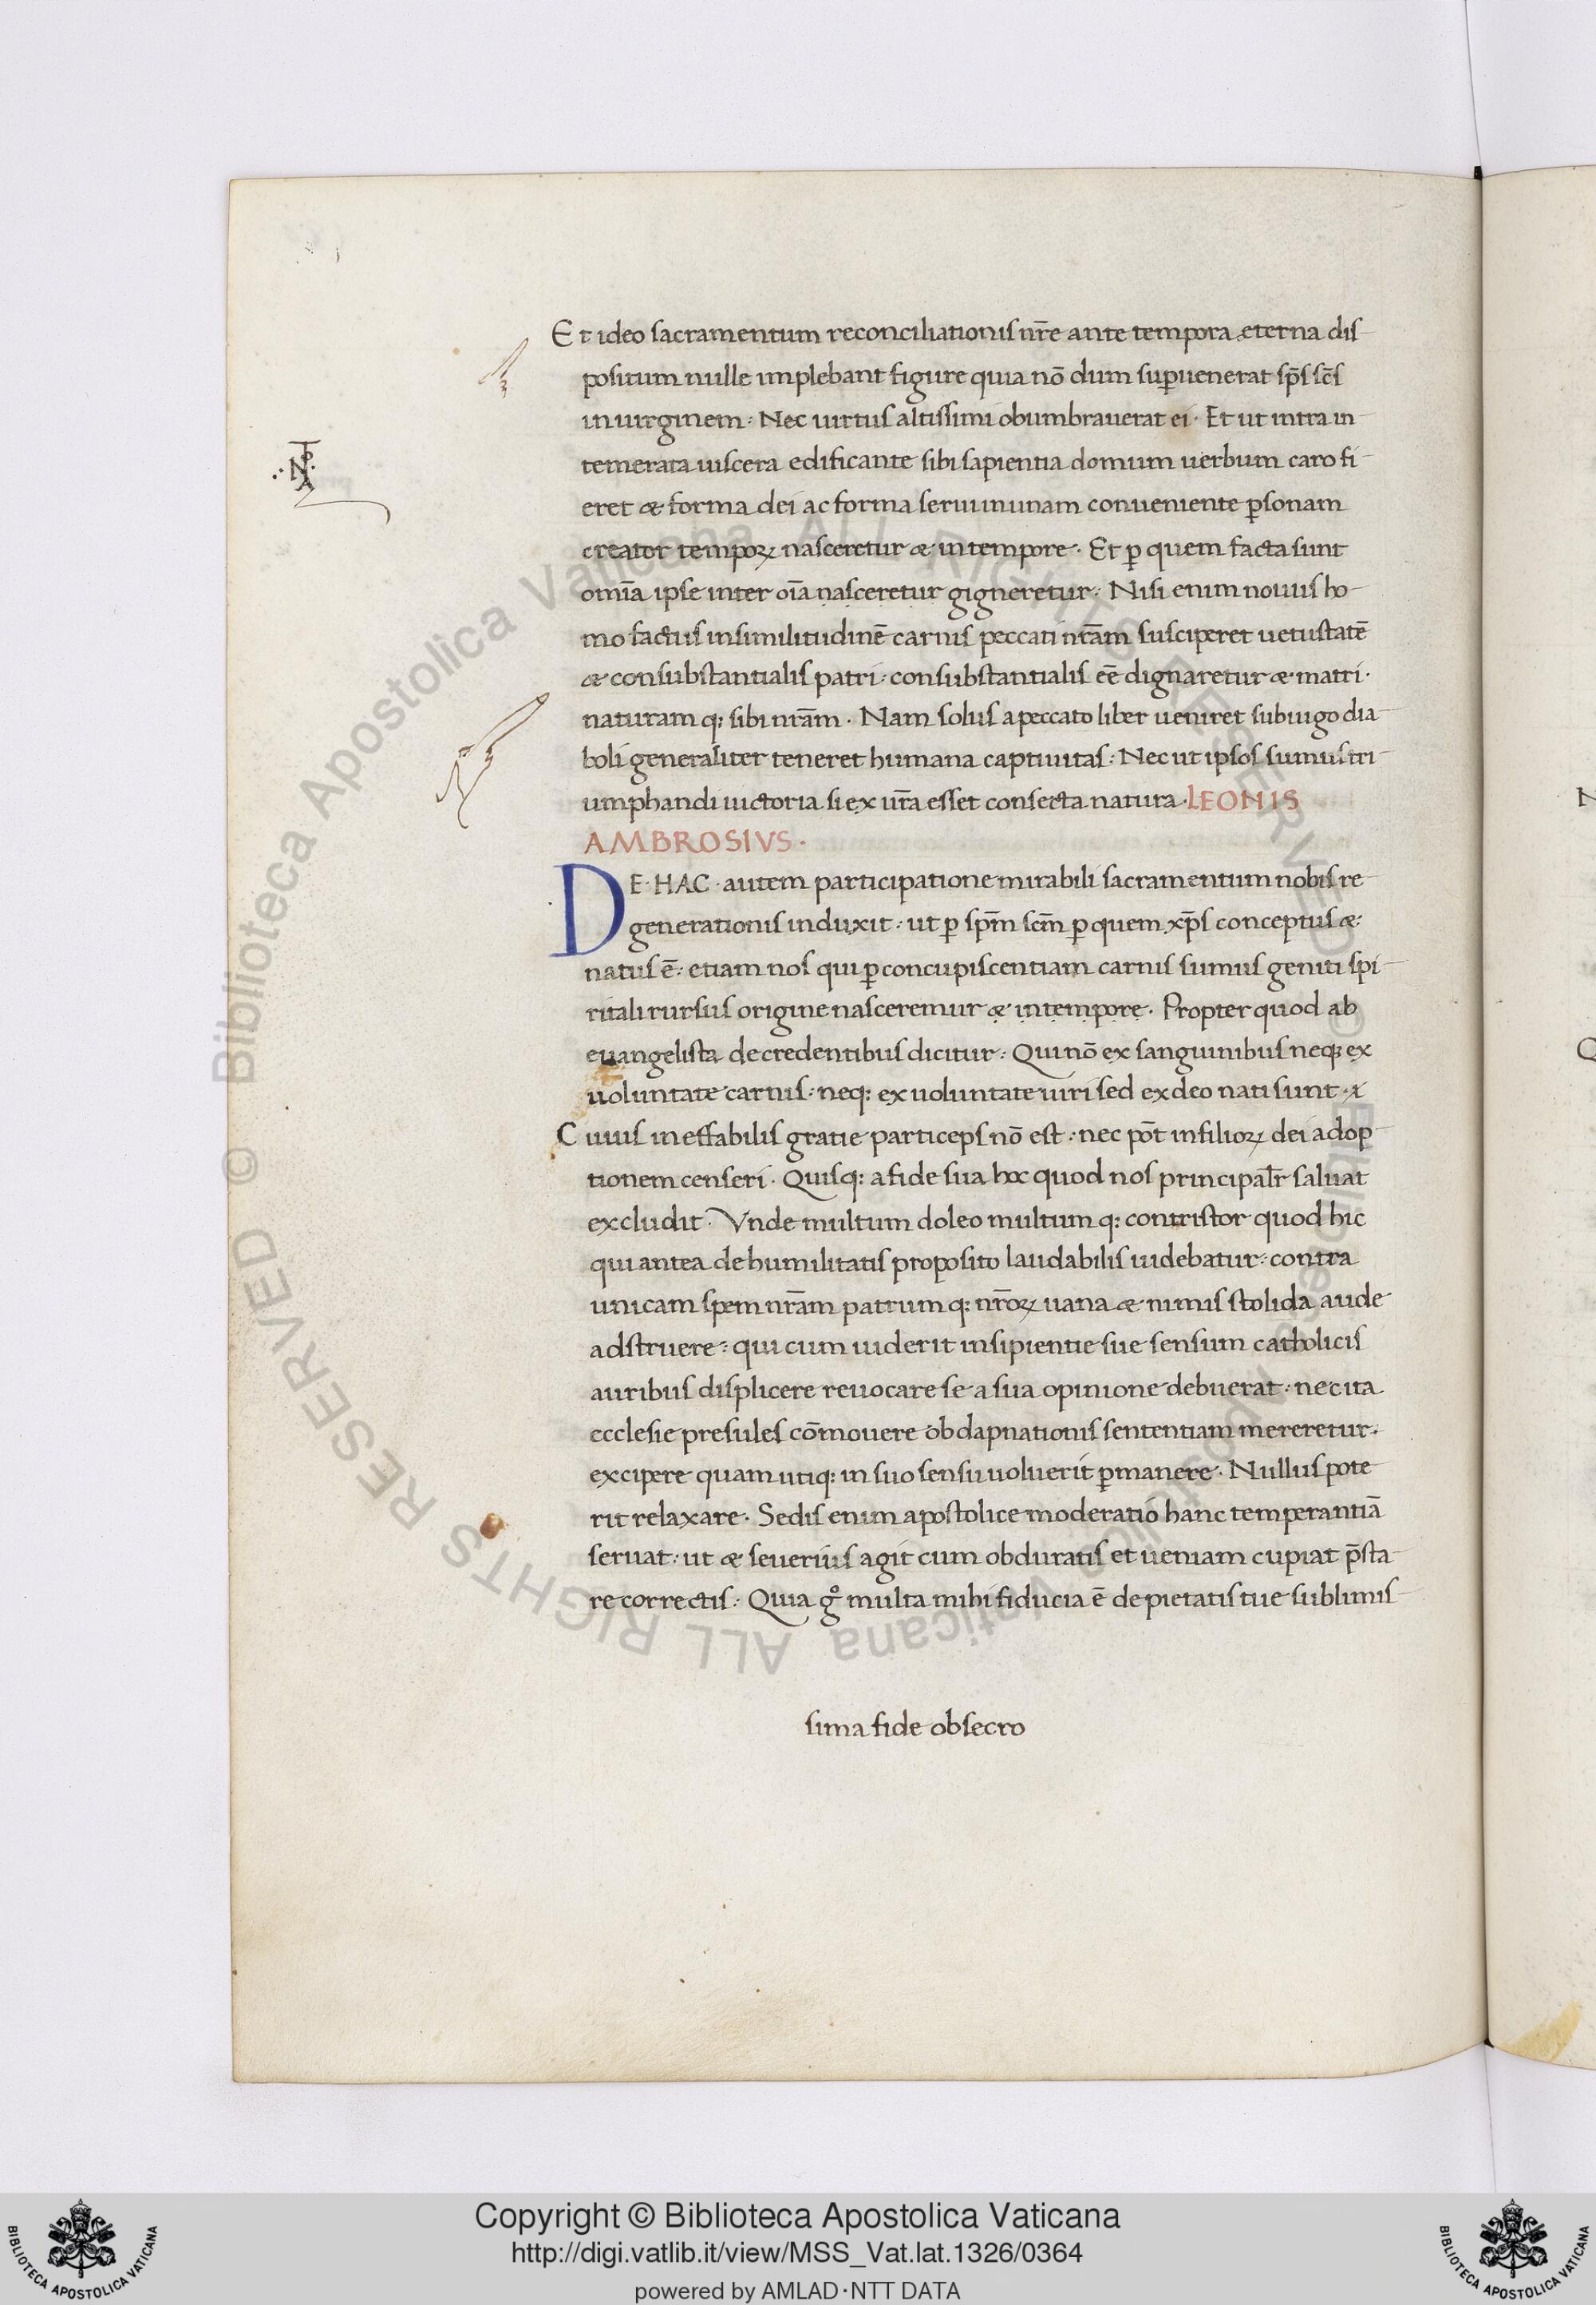 Et ideo sacramentum reconciliationis nr̄e ante tempora eterna dis
positum nulle implebant figure quia nō dum suꝑuenerat sp̄s sc̄s
in uirginem: Nec uirtus altissimi obumbrauerat ei· Et ut intra in
temerata uiscera edificante sibi sapientia domum uerbum caro fi
eret & forma dei ac forma serui in unam conueniente ꝑsonam
creator tempoꝝ nasceretur & in tempore· Et ꝑ quem facta sunt
omīa ipse inter oīa nasceretur gigneretur· Nisi enim nouus ho
mo factus in similitudinē carnis peccati nr̄am susciperet uetustatē
& consubstantialis patri: consubstantialis eē dignaretur & matri·
naturam q: sibi nr̄am· Nam solus a peccato liber ueniret sub iugo dia
boli generaliter teneret humana captiuitas: Nec ut ipsos sumus tri
umphandi uictoria si ex ur̄a esset consecta natura· LEONIS
AMBROSIVS·
DE·HAC· autem participatione mirabili sacramentum nobis re
generationis induxit: ut ꝑ sp̄m sc̄m ꝑ quem xp̄s conceptus &
natus ē: etiam nos qui ꝑ concupiscentiam carnis sumus geniti spi
ritali rursus origine nasceremur & in tempore· Propter quod ab
euangelista de credentibus dicitur: Qui nō ex sanguinibus neq; ex
uoluntate carnis: neq: ex uoluntate uiri sed ex deo nati sunt·
Cuius ineffabilis gratie particeps nō est: nec pōt in filioꝝ dei adop
tionem censeri· Quisq: a fide sua hoc quod nos principalr̄ saluat
excludit· Vnde multum doleo multum q: contristor quod hic
qui antea de humilitatis proposito laudabilis uidebatur: contra
unicam spem nr̄am patrum q: nr̄oꝝ uana & nimis stolida aude
adstruere: qui cum uiderit insipientie sue sensum catholicis
auribus displicere reuocare se a sua opinione debuerat: nec ita
ecclesie presules cōmouere ob dapnationis sententiam mereretur·
excipere quam utiq: in suo sensu uoluerit ꝑmanere· Nullus pote
rit relaxare· Sedis enim apostolice moderatio hanc temperantiā
seruat: ut & seuerius agit cum obduratis et ueniam cupiat p̄sta
re correctis: Quia gͦ multa mihi fiducia ē de pietatis tue sublimis
sima fide obsecro
Copyright © Biblioteca Apostolica Vaticana
http://digi.vatlib.it/view/MSS_Vat.lat.1326/0364
powered by AMLAD·NTT DATA